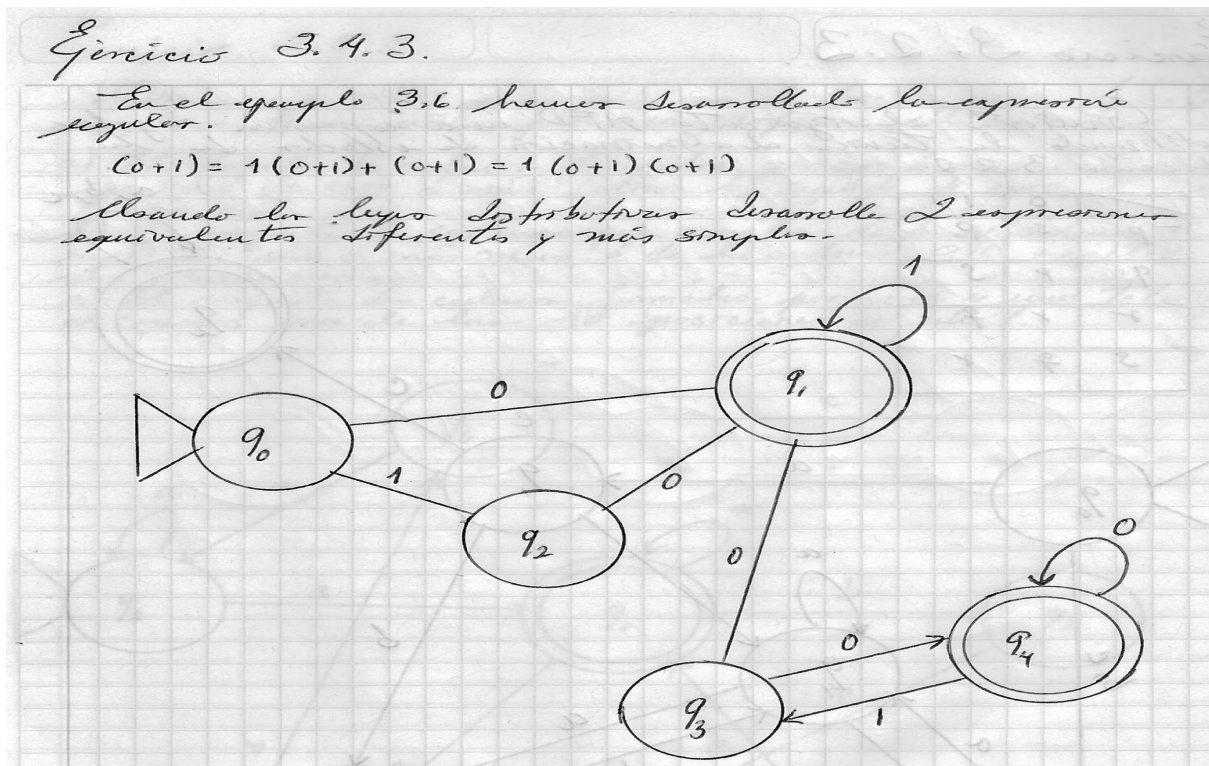 Ejercicio 3.4.3.
En el ejemplo 3.6 hemos desarrollado la expresión
regular.
(0+1) = 1(0+1)+ (0+1) = 1 (0+1) (0+1)
Usando las leyes distributivas desarrolle 2 expresiones
equivalentes diferentes y más simples.
1
0
q₁
q₀
1
0
q₂
0
0
0
q₄
q₃
1